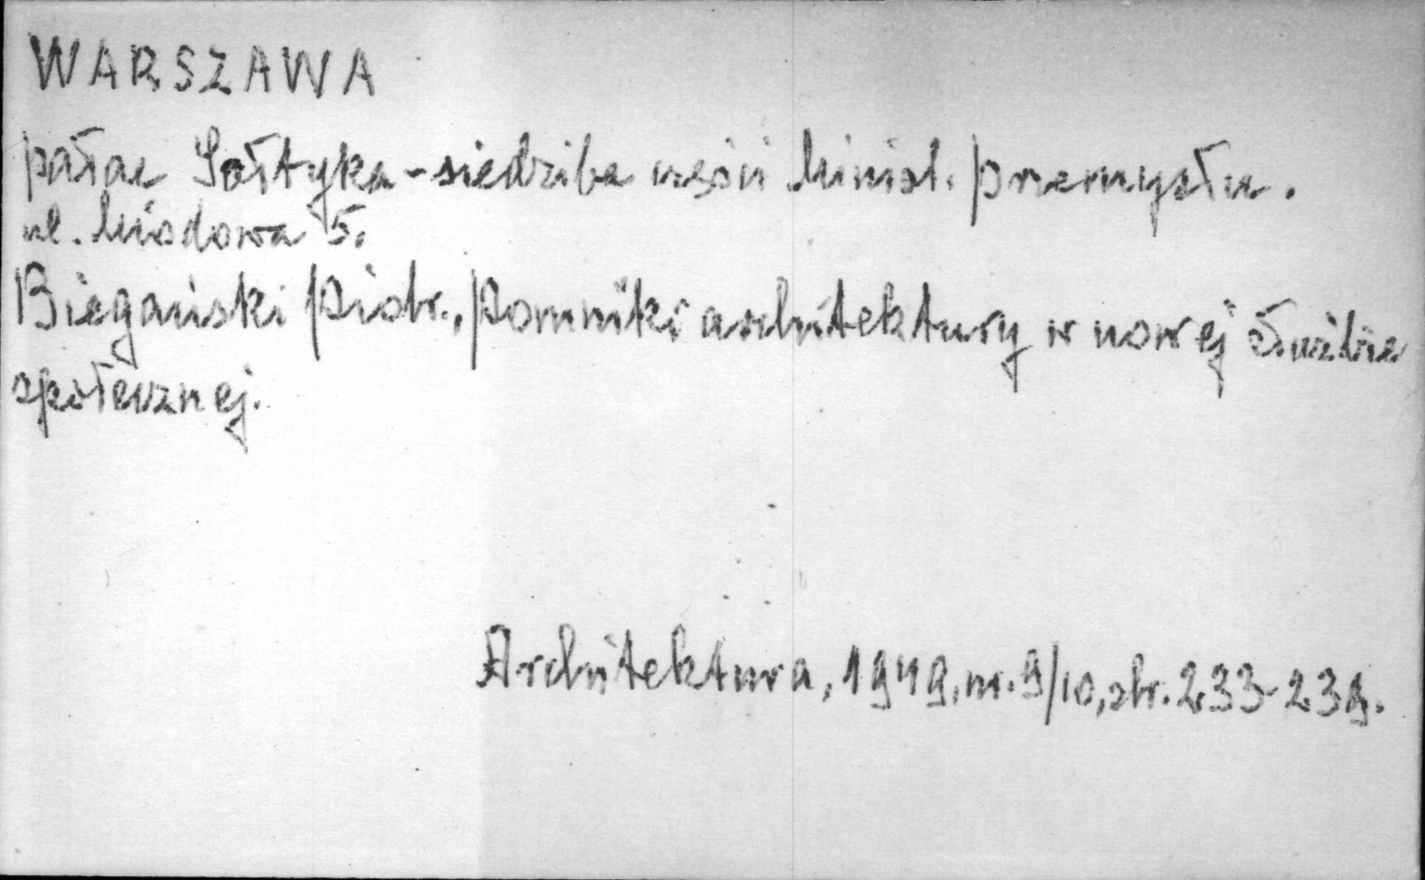 WARSZAWA
pałac Sołtyka - siedziba części Minist. Przemysłu.
ul. Miodowa 5.
Biegański Piotr., Pomniki architektury w nowej służbie
społecznej.
Architektura, 1949, nr. 9/10, str. 233-239.